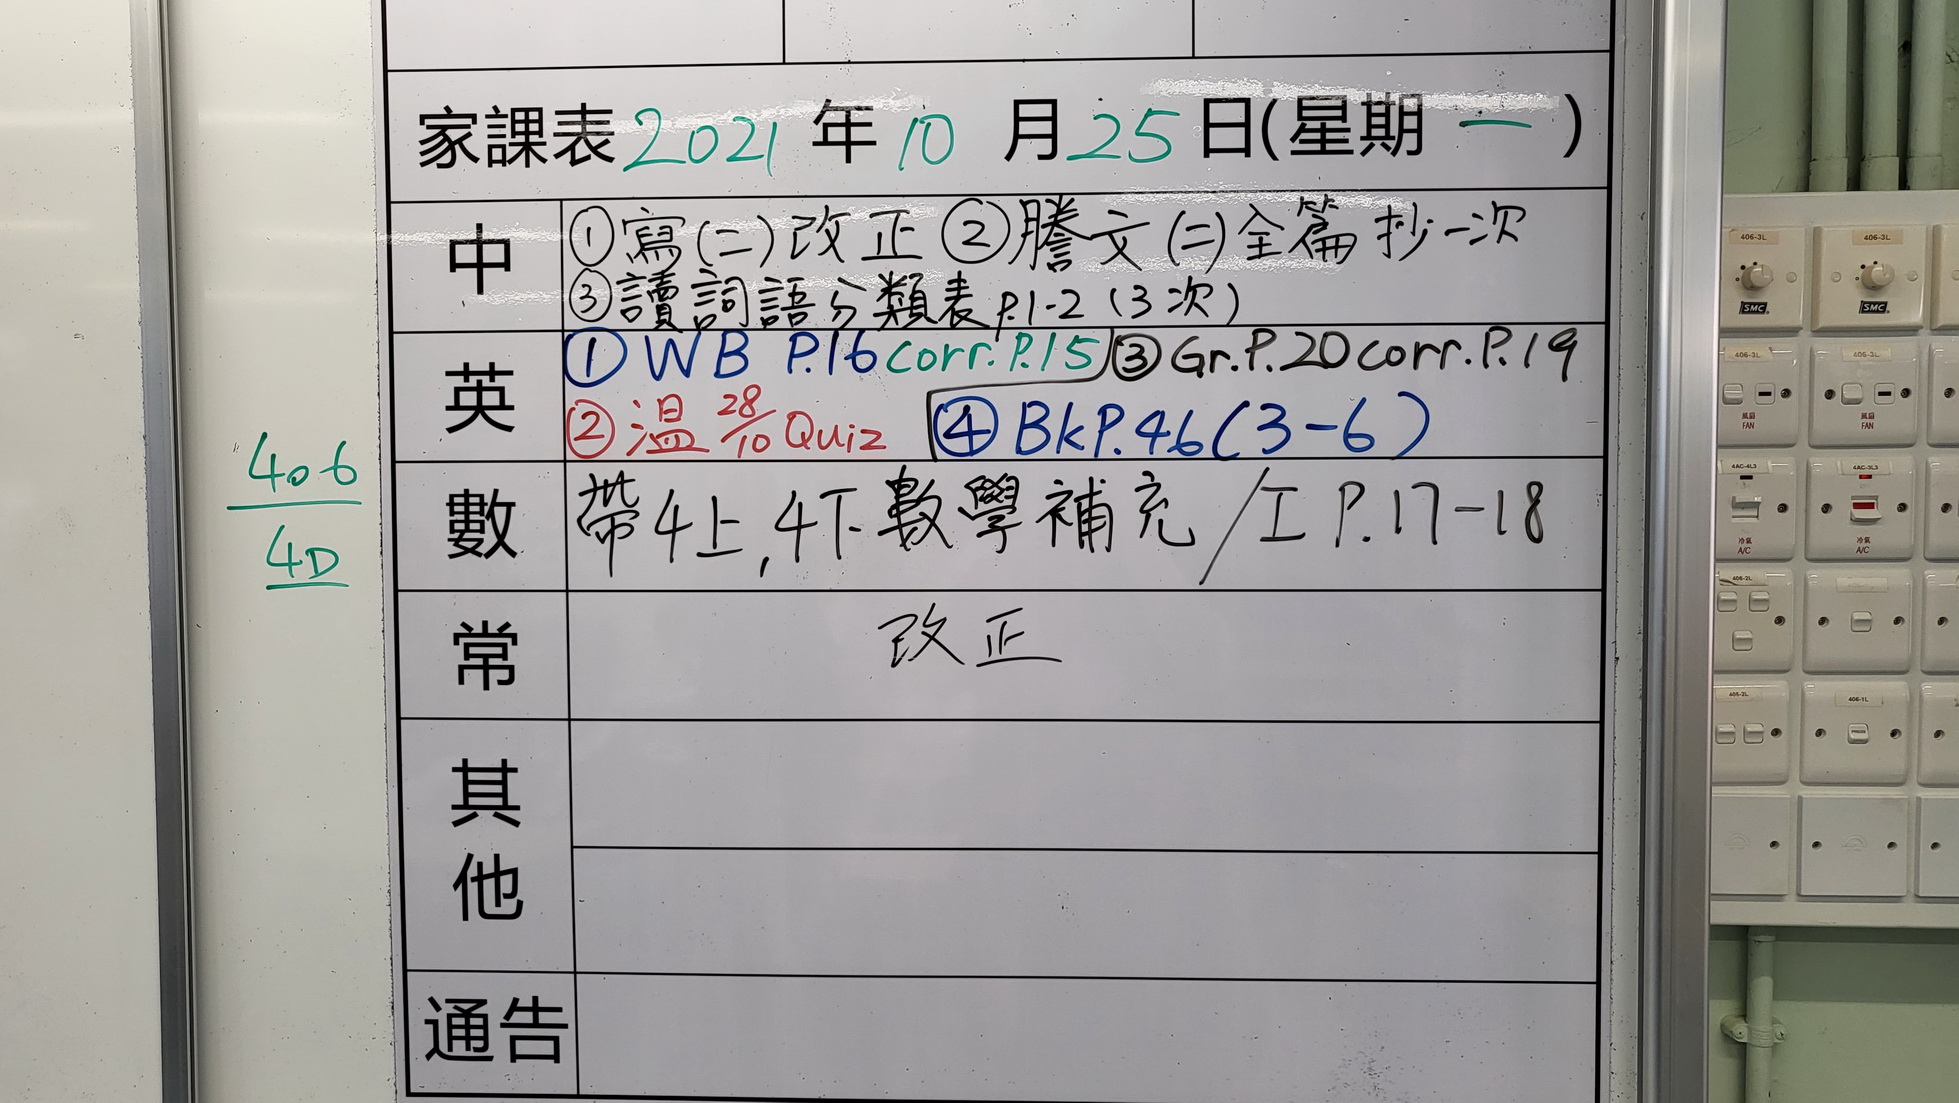 家課表 2021 年 10 月 25 日(星期 一 )
中
①寫(二)改正 ②謄文(二)全篇抄一次
③讀詞語分類表 p.1-2 (3次)
英
① WB P.16 corr.P.15 ③ Gr.P.20 corr.P.19
② 溫 28/10 Quiz ④ Bk P.46 (3-6)
數
帶4上,4下數學補充/工 P.17-18
常
改正
其他
通告
406
4D
406-3L 406-3L
SMC SMC
406-3L 406-3L
風扇 FAN 風扇 FAN
4AC-4L3 4AC-3L3
冷氣 A/C 冷氣 A/C
406-2L
406-1L